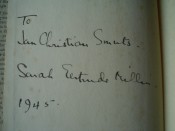 To
Jan Christian Smuts.
Sarah Gertrude Millin
1945.